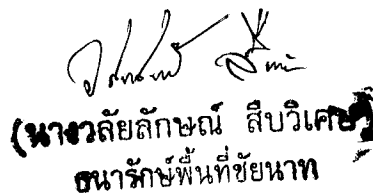 (นางวลัยลักษณ์ สืบวิเศษ)
ธนารักษ์พื้นที่ชัยนาท